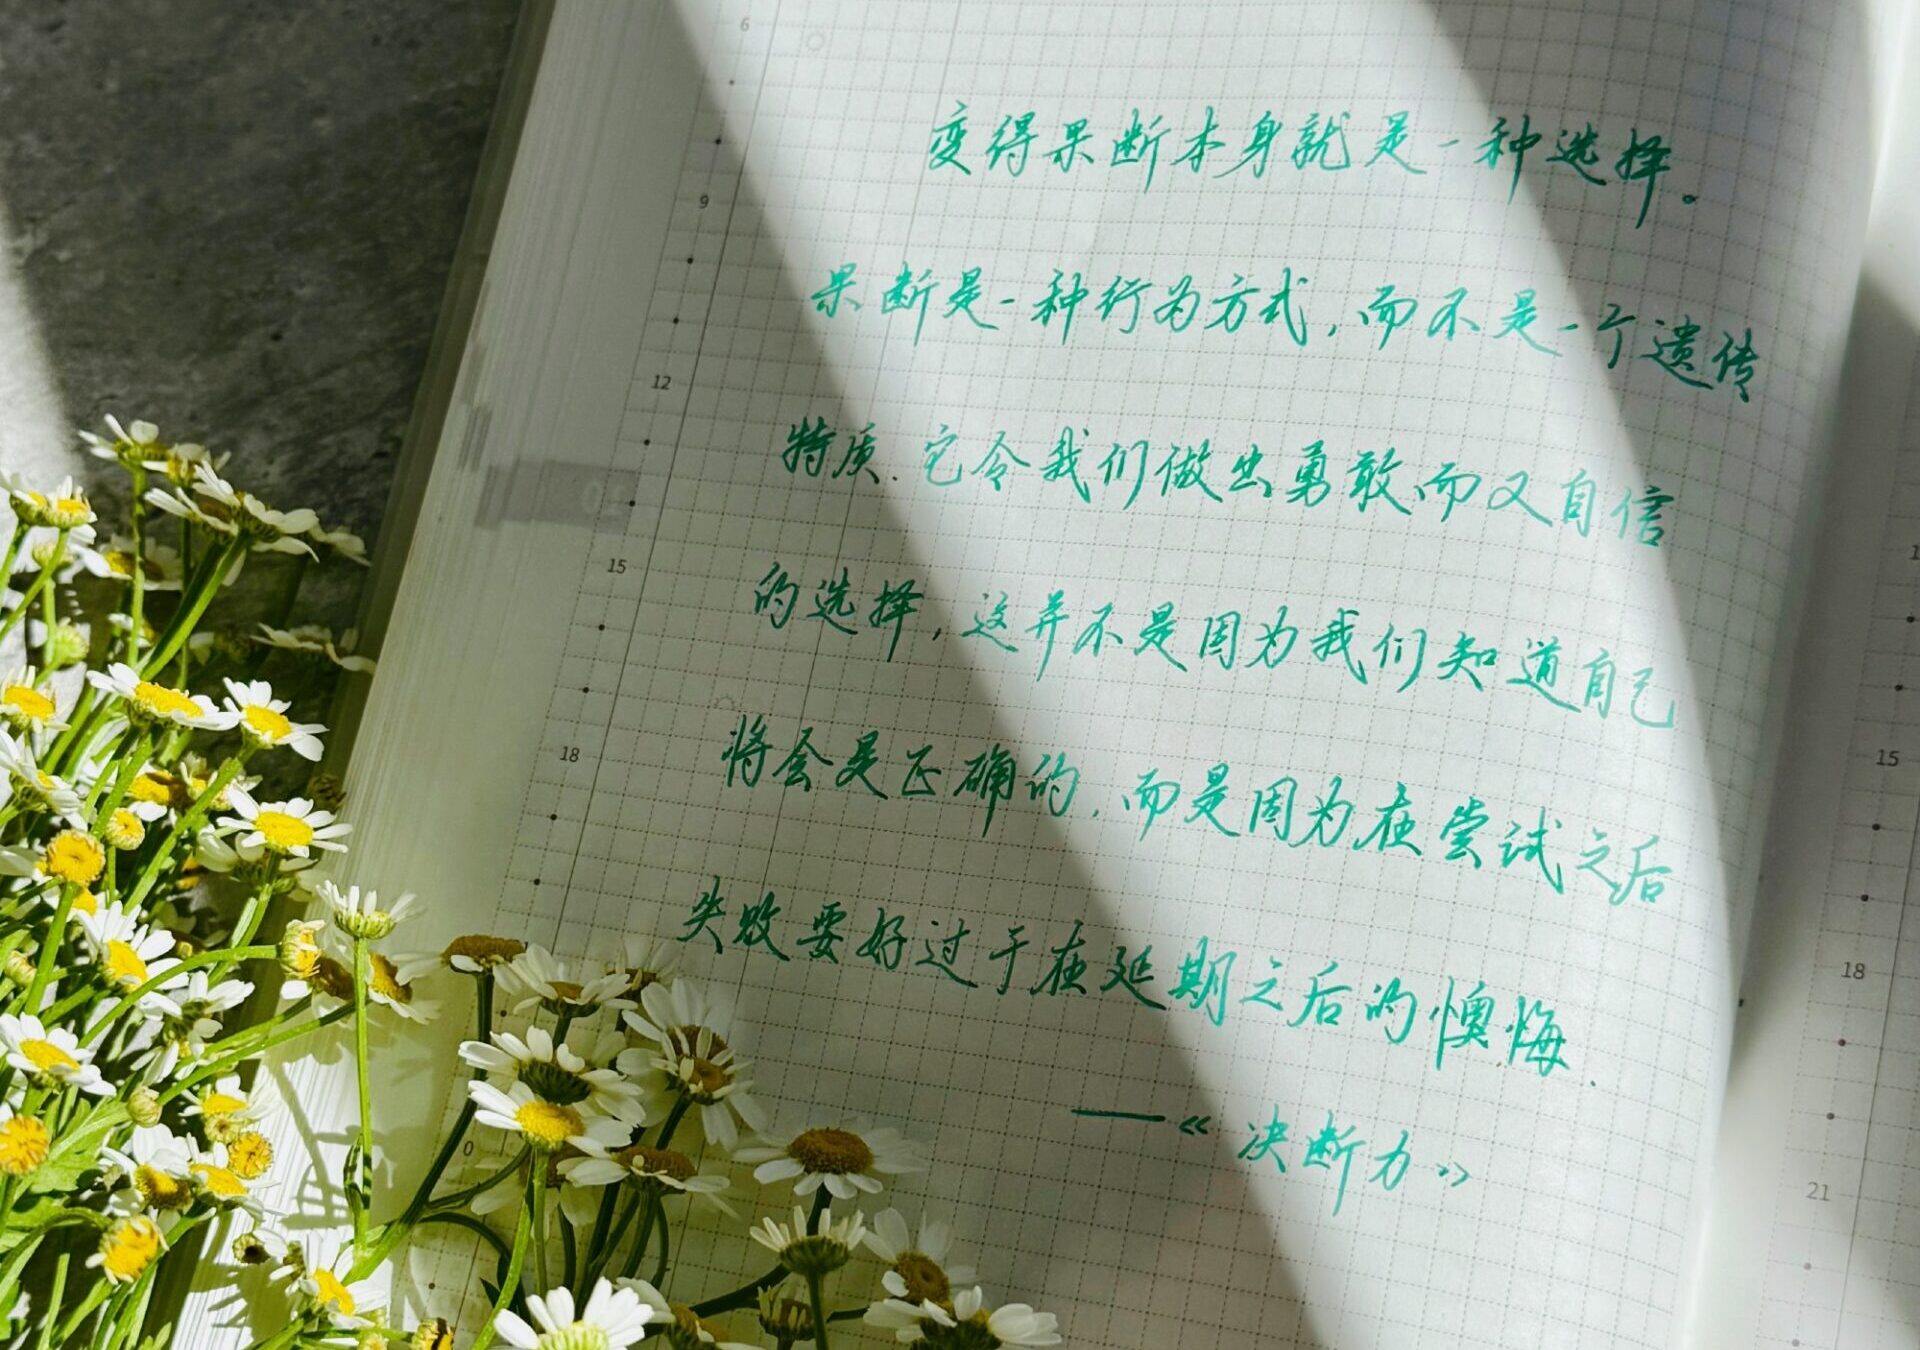 变得果断本身就是一种选择。
果断是一种行为方式,而不是一个遗传
特质.它令我们做出勇敢而又自信
的选择,这并不是因为我们知道自己
将会是正确的,而是因为在尝试之后
失败要好过于在延期之后的懊悔.
——《决断力》
6
9
12
15
18
0
15
18
21